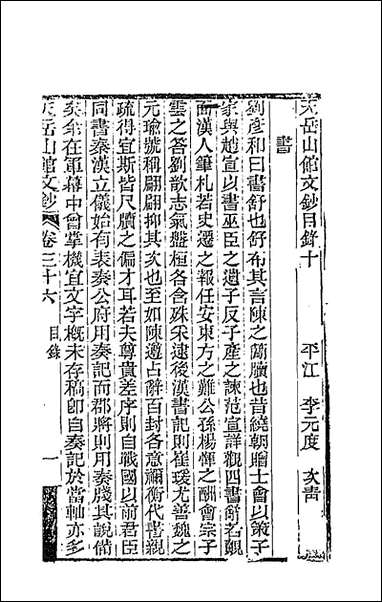 天岳山館文鈔目錄十
平江　李元度　次青
書
劉彥和曰書舒也舒布其言陳之簡牘也昔繞朝贈士會以策子
家與趙宣以書巫臣之遺子反子產之諫范宣詳觀四書辭若覿
面漢人筆札若史遷之報任安東方之難公孫楊惲之酬會宗子
雲之答劉歆志氣盤桓各含殊采逮後漢書記則崔瑗尤善魏之
元瑜號稱翩翩抑其次也至如陳遵占辭百封各意禰衡代書親
疏得宜斯皆尺牘之偏才耳若夫尊貴差序則自戰國以前君臣
同書秦漢立儀始有表奏公府用奏記而郡將則用奏牋其說備
矣余在軍幕中曾掌機宜文字概未存稿卽自奏記於當軸亦多
天岳山館文鈔
卷三十六
目錄
一